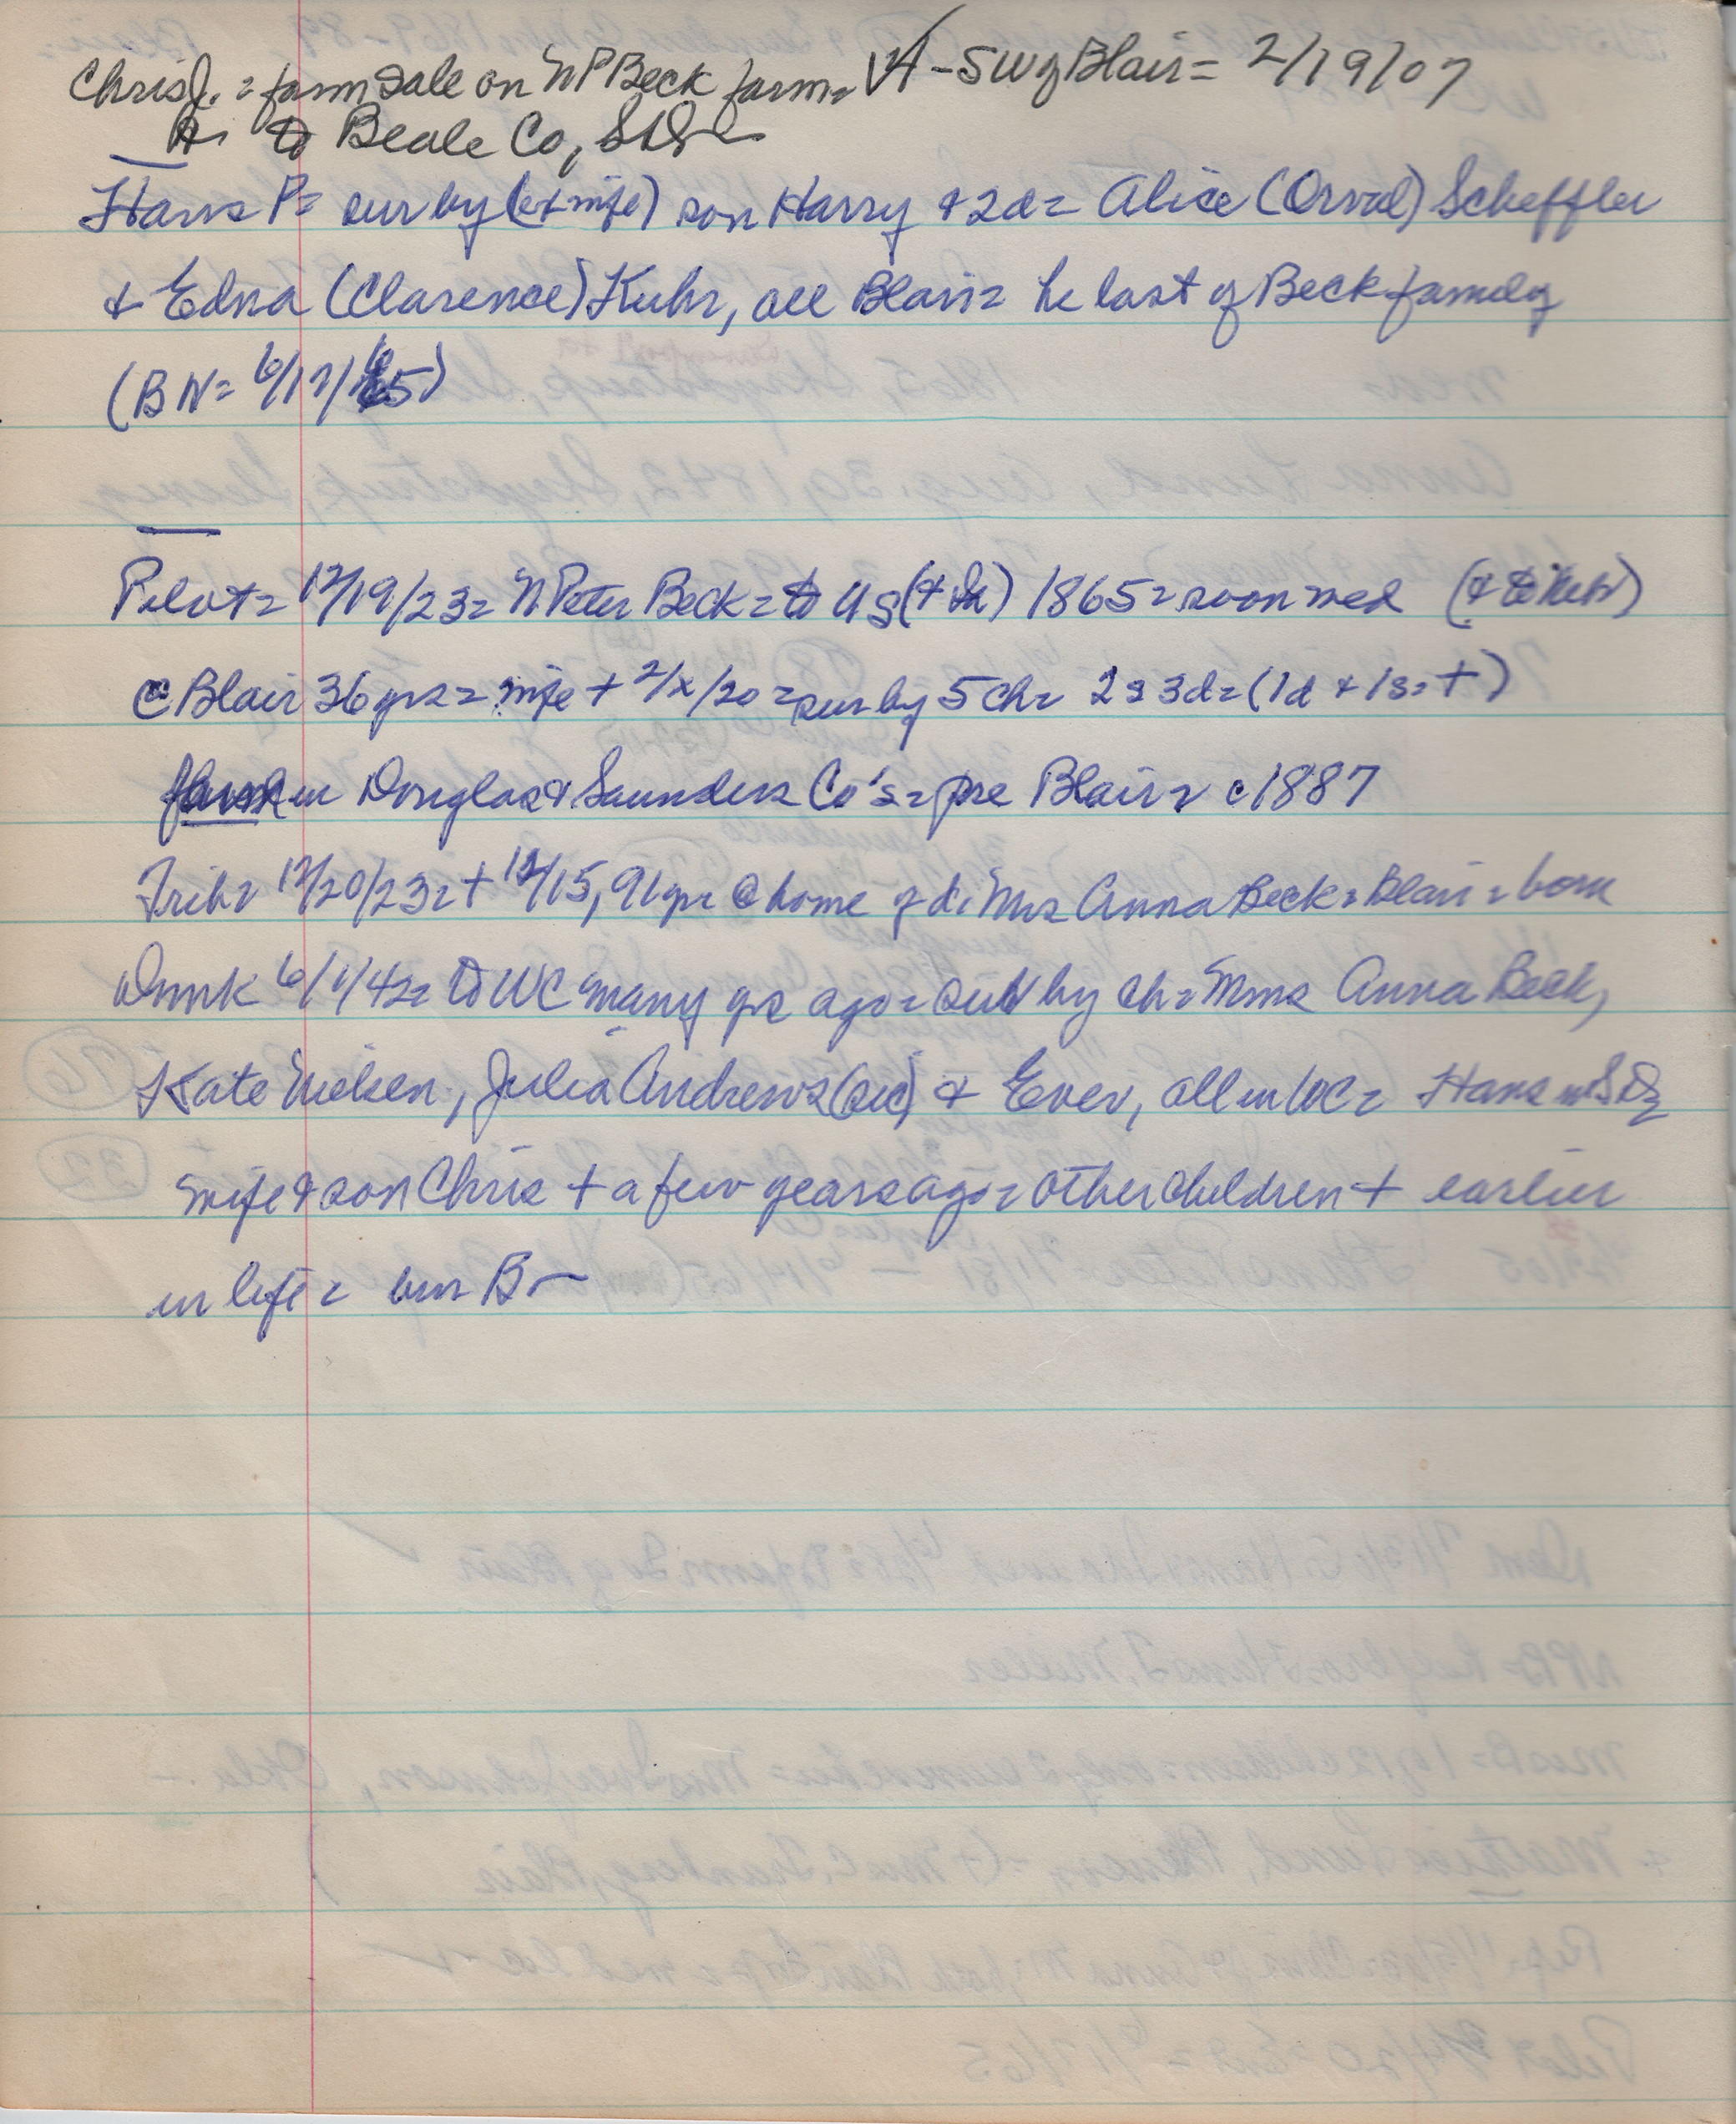 Chris J. = farm sale on NP Beck farm = VA - SW of Blair = 2/19/07
to Beale Co, SD
Hans P = sur by (ex wife) son Harry & 2d = Alice (Orval) Scheffler
& Edna (Clarence) Kuhr, all Blair = he last of Beck family
(BN = 6/17/65)
Pilot = 12/19/23 = N Peter Beck = to US (+ ) 1865 = soon med (& to Nebr)
c Blair 36 yrs = wife + 2/x/20 = sur by 5 ch = 2s 3d = (1d & 1s = +)
in Douglas & Saunders Co's = pre Blair = c 1887
Trib = 12/20/23 = + 12/15, 91 yrs @ home of d. Mrs Anna Beck = Blair = born
Dnmk 6/1/42 = to WC many yrs ago = sur by ch = Mmes Anna Beck,
Kate Nielsen, Julia Andrews (sic) & Ever, all in WC = Hans in SD =
wife & son Chris + a few years ago = other children + earlier
in life = bur B